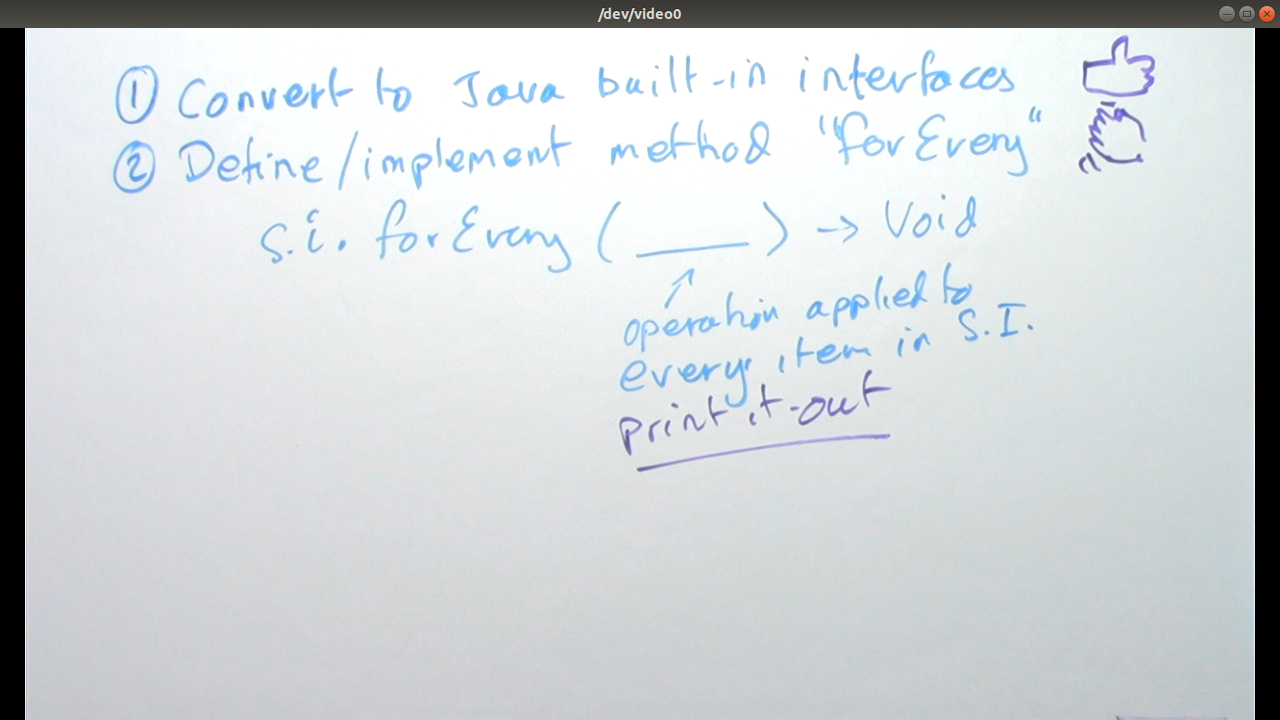 /dev/video0
① Convert to Java built-in interfaces
② Define/implement method "forEvery"
s.i. forEvery ( ____ ) → Void
operation applied to
every item in S.I.
print it-out